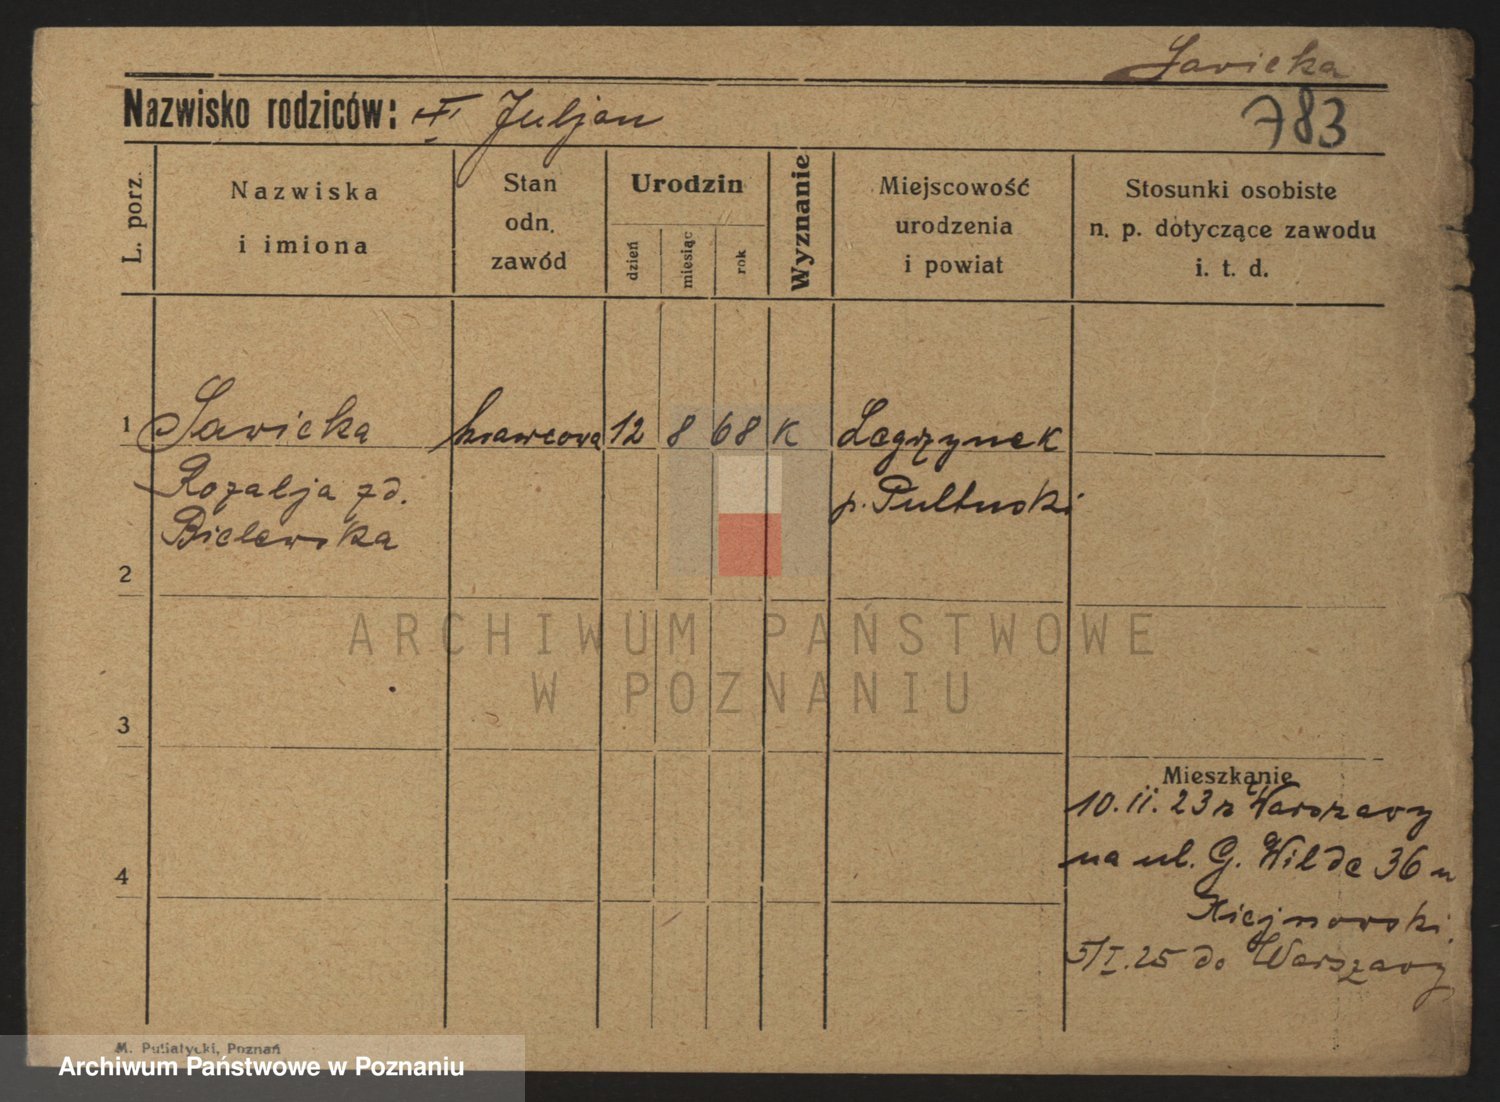 Sawicka
Nazwisko rodziców: Juljan
783
L. porz.
Nazwiska
i imiona
Stan
odn.
zawód
Urodzin
dzień
miesiąc
rok
Wyznanie
Miejscowość
urodzenia
i powiat
Stosunki osobiste
n. p. dotyczące zawodu
i. t. d.
1 Sawicka krawcowa 12 8 68 K Legrzynek
Rozalja zd. p. Pultuski
Bielewska
2
ARCHIWUM PAŃSTWOWE
W POZNANIU
3
4
Mieszkanie
10. II. 23 z Warszawy
na ul. G. Wilde 36 u
5/I. 25 do Warszawy
M. Putiatycki, Poznań
Archiwum Państwowe w Poznaniu